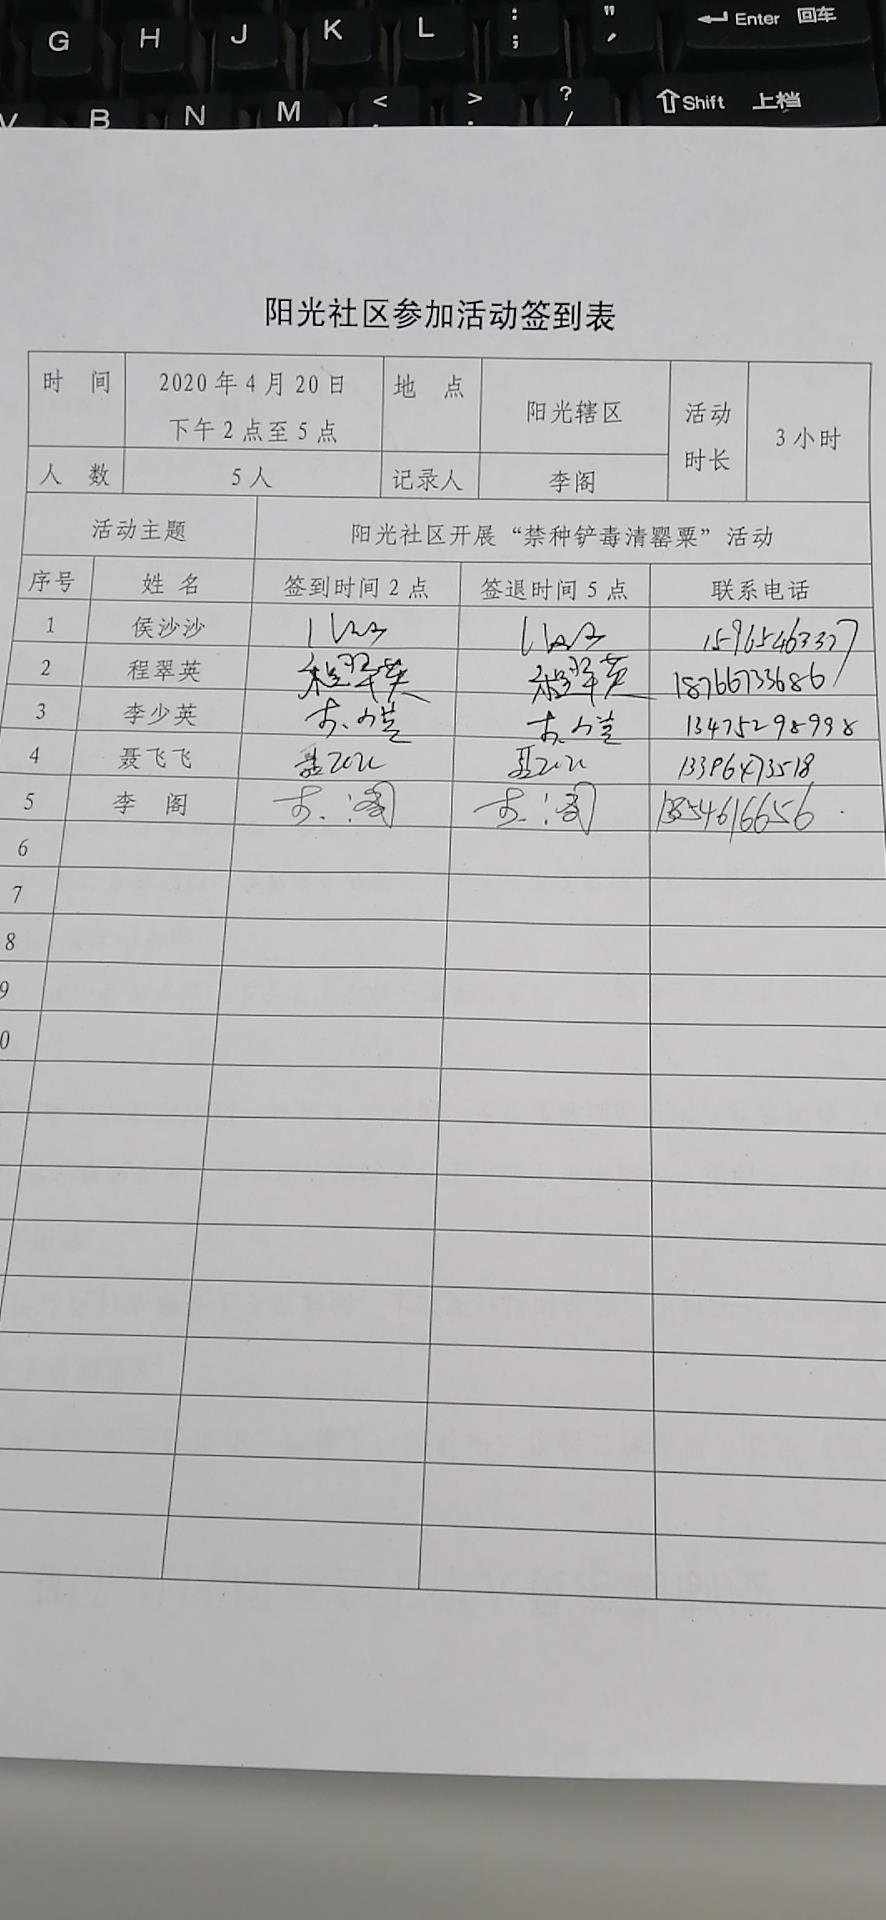 G H J K L : ; " ' Enter 回车
V B N M < , > . ? / Shift 上档
阳光社区参加活动签到表
时 间 2020年4月20日 下午2点至5点 地 点 阳光辖区 活动时长 3小时
人 数 5人 记录人 李阁
活动主题 阳光社区开展“禁种铲毒清罂粟”活动
序号 姓 名 签到时间2点 签退时间5点 联系电话
1 侯沙沙 15965463327
2 程翠英 程翠英 程翠英 18766733686
3 李少英 13475298998
4 聂飞飞 13396473518
5 李 阁 李阁 李阁
6
7
8
9
0